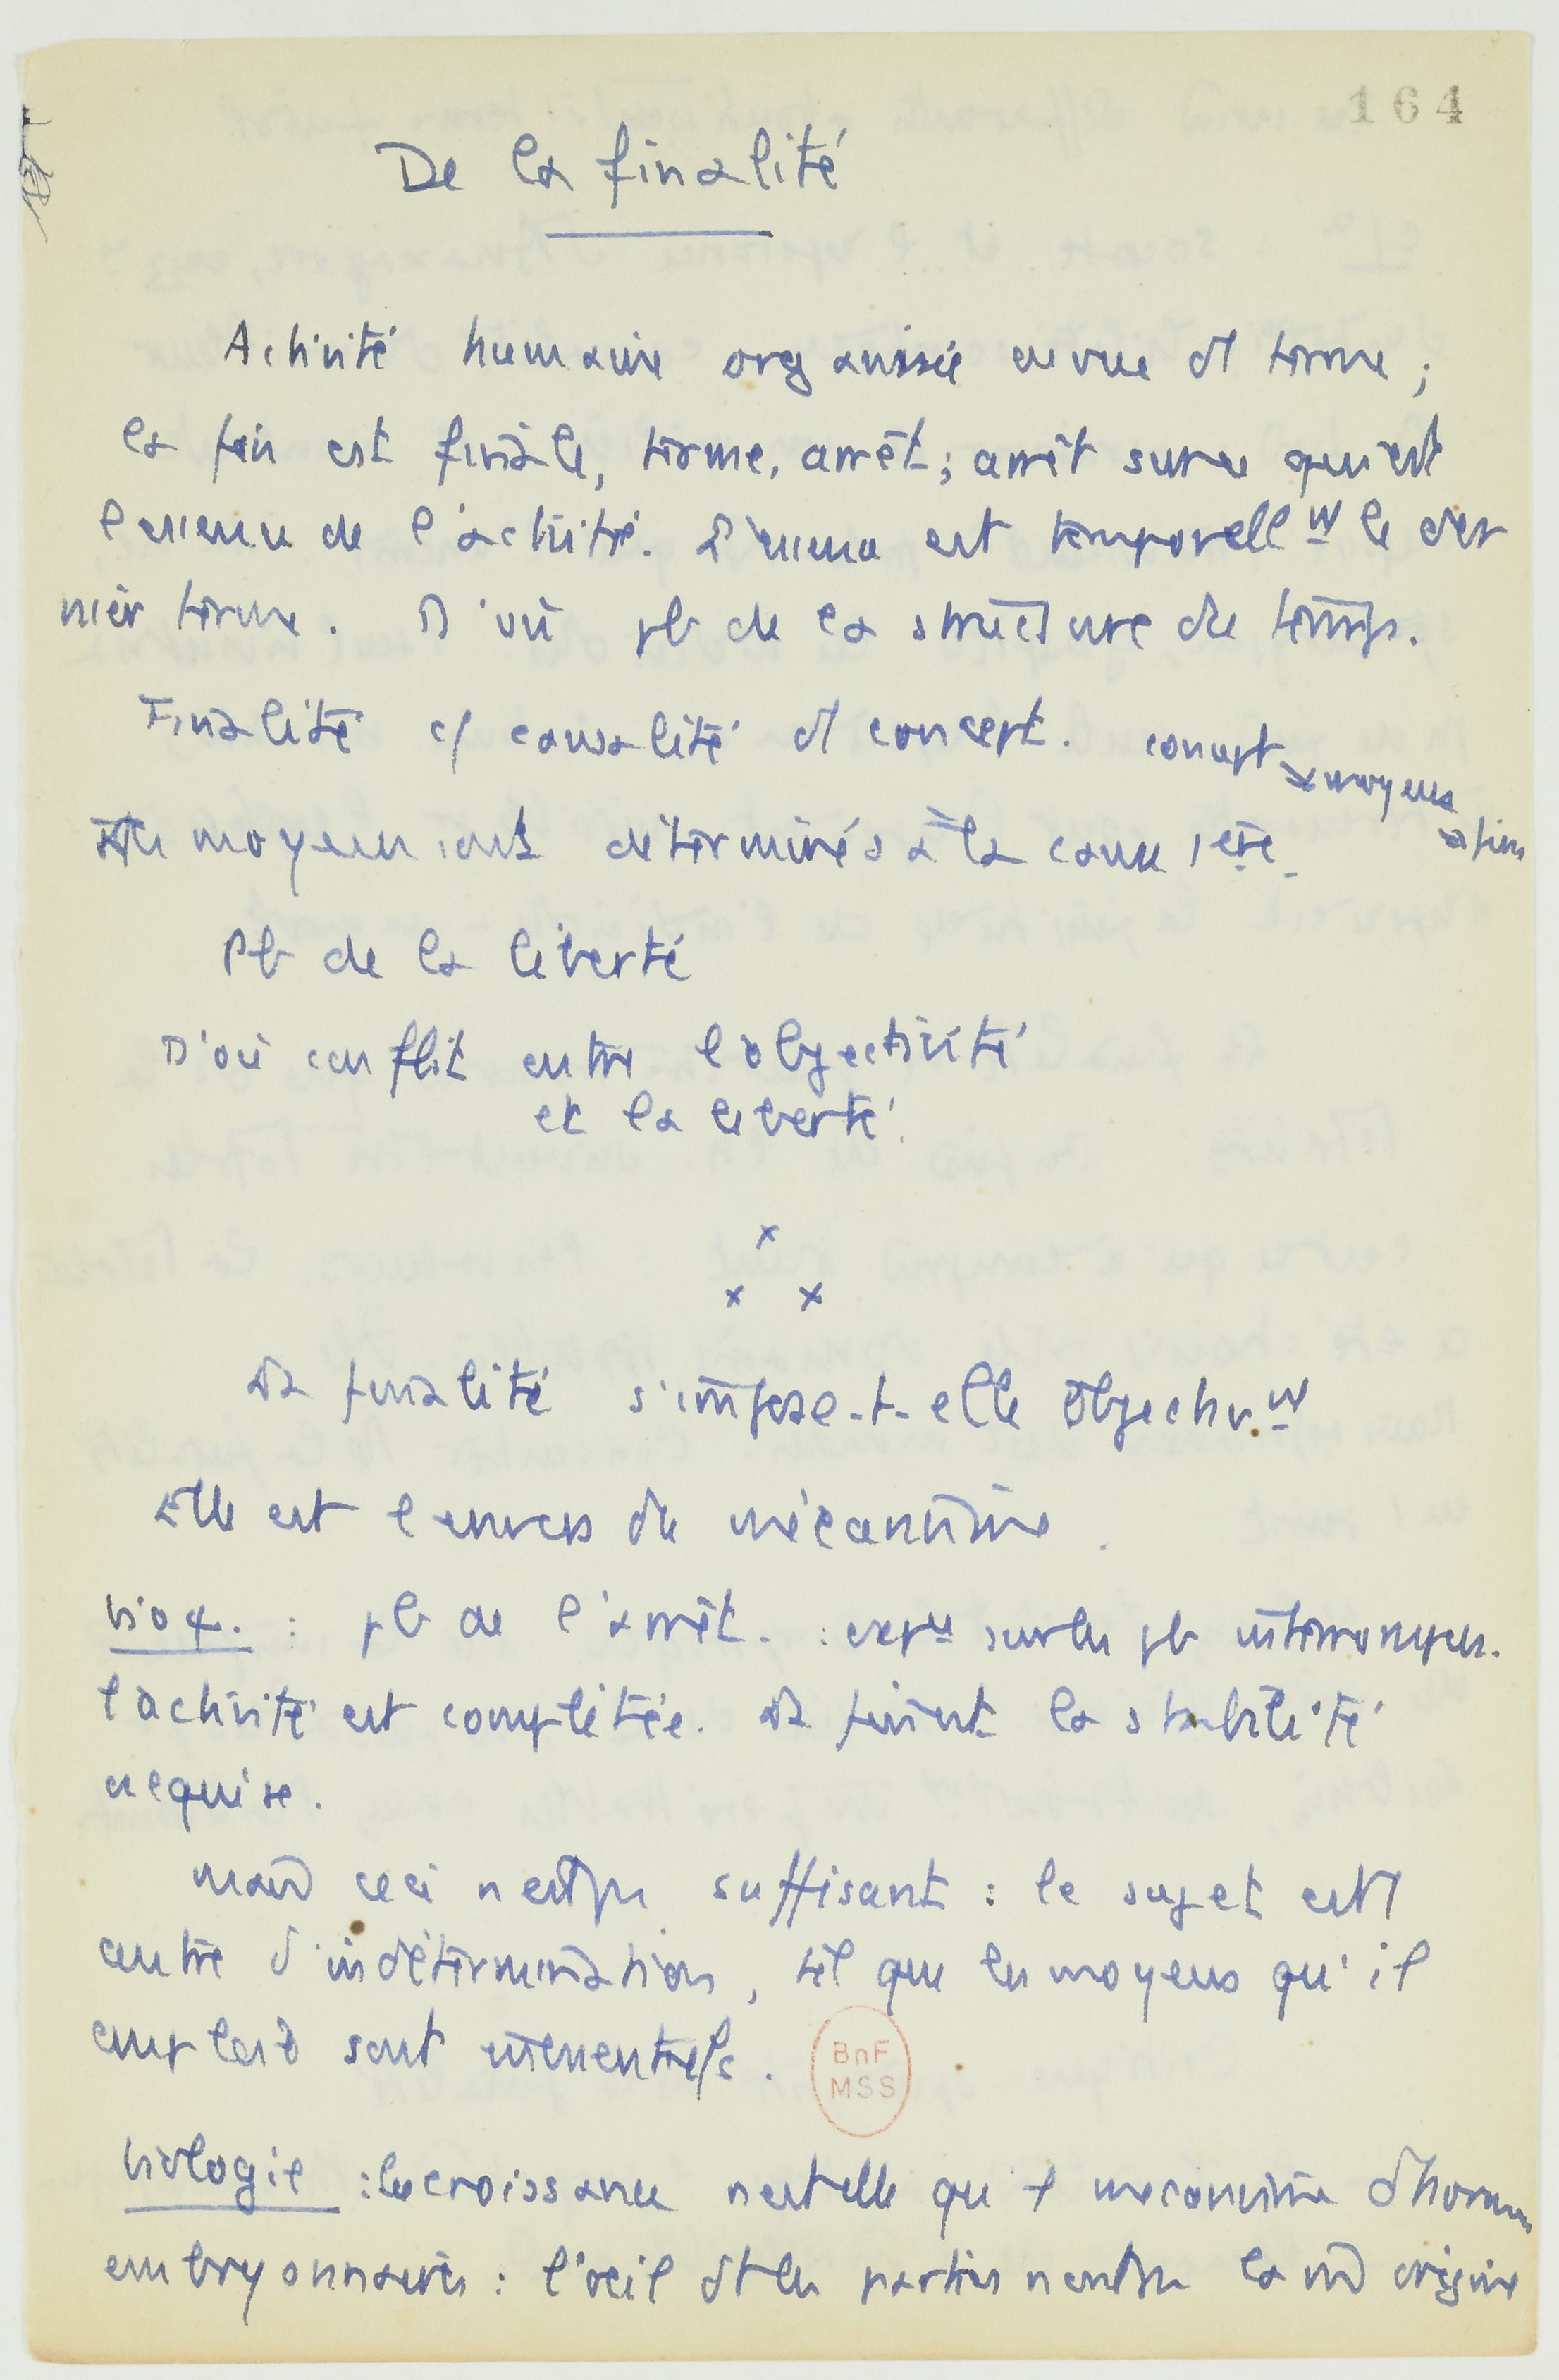 164
De la finalité
Activité humaine organisée en vue d'1 terme ;
la fin est finale, terme, arrêt ; arrêt sur ce qui est
l'essence de l'activité. L'essence est temporellt le der
nier terme. D'où pb de la structure du temps.
Finalité c/ causalité d'1 concept. concept
→ moyens
→ fins
les moyens sont déterminés à la cause 1ère.
Pb de la liberté
D'où conflit entre l'objectivité
et la liberté.
x
x x
La finalité s'impose-t-elle objectivt
Elle est l'envers du mécanisme.
: pb de l'arrêt. : sur les pb interrompus.
l'activité est complétée. La fin est la stabilité
acquise.
Mais ceci n'est pas suffisant : le sujet est 1
centre d'indétermination, tel que les moyens qu'il
emploie sont
BnF
MSS
biologie : la croissance n'est-elle qu'1 mécanisme d'hormones
embryonnaires : l'oeil dt les parties n'ont pas la mê origine